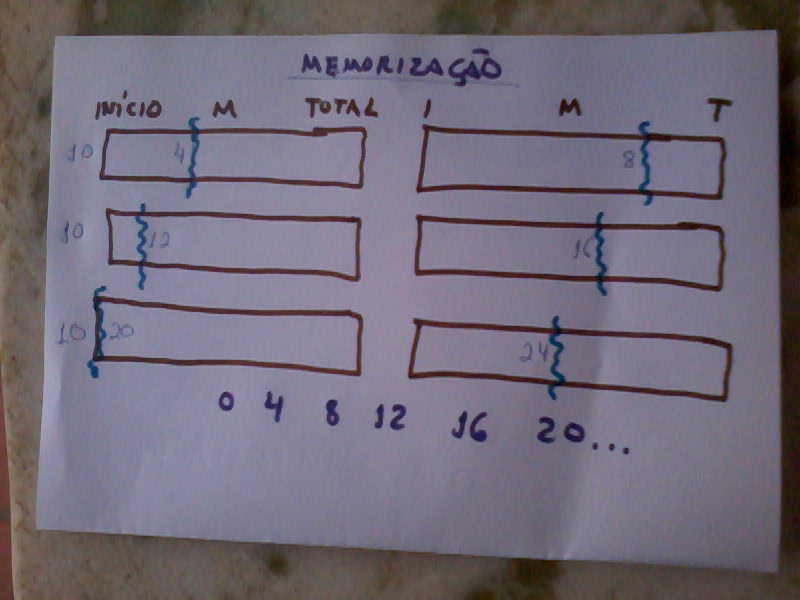 MEMORIZAÇÃO
INÍCIO M TOTAL I M T
10 4 8
10 12 16
10 20 24
0 4 8 12 16 20...